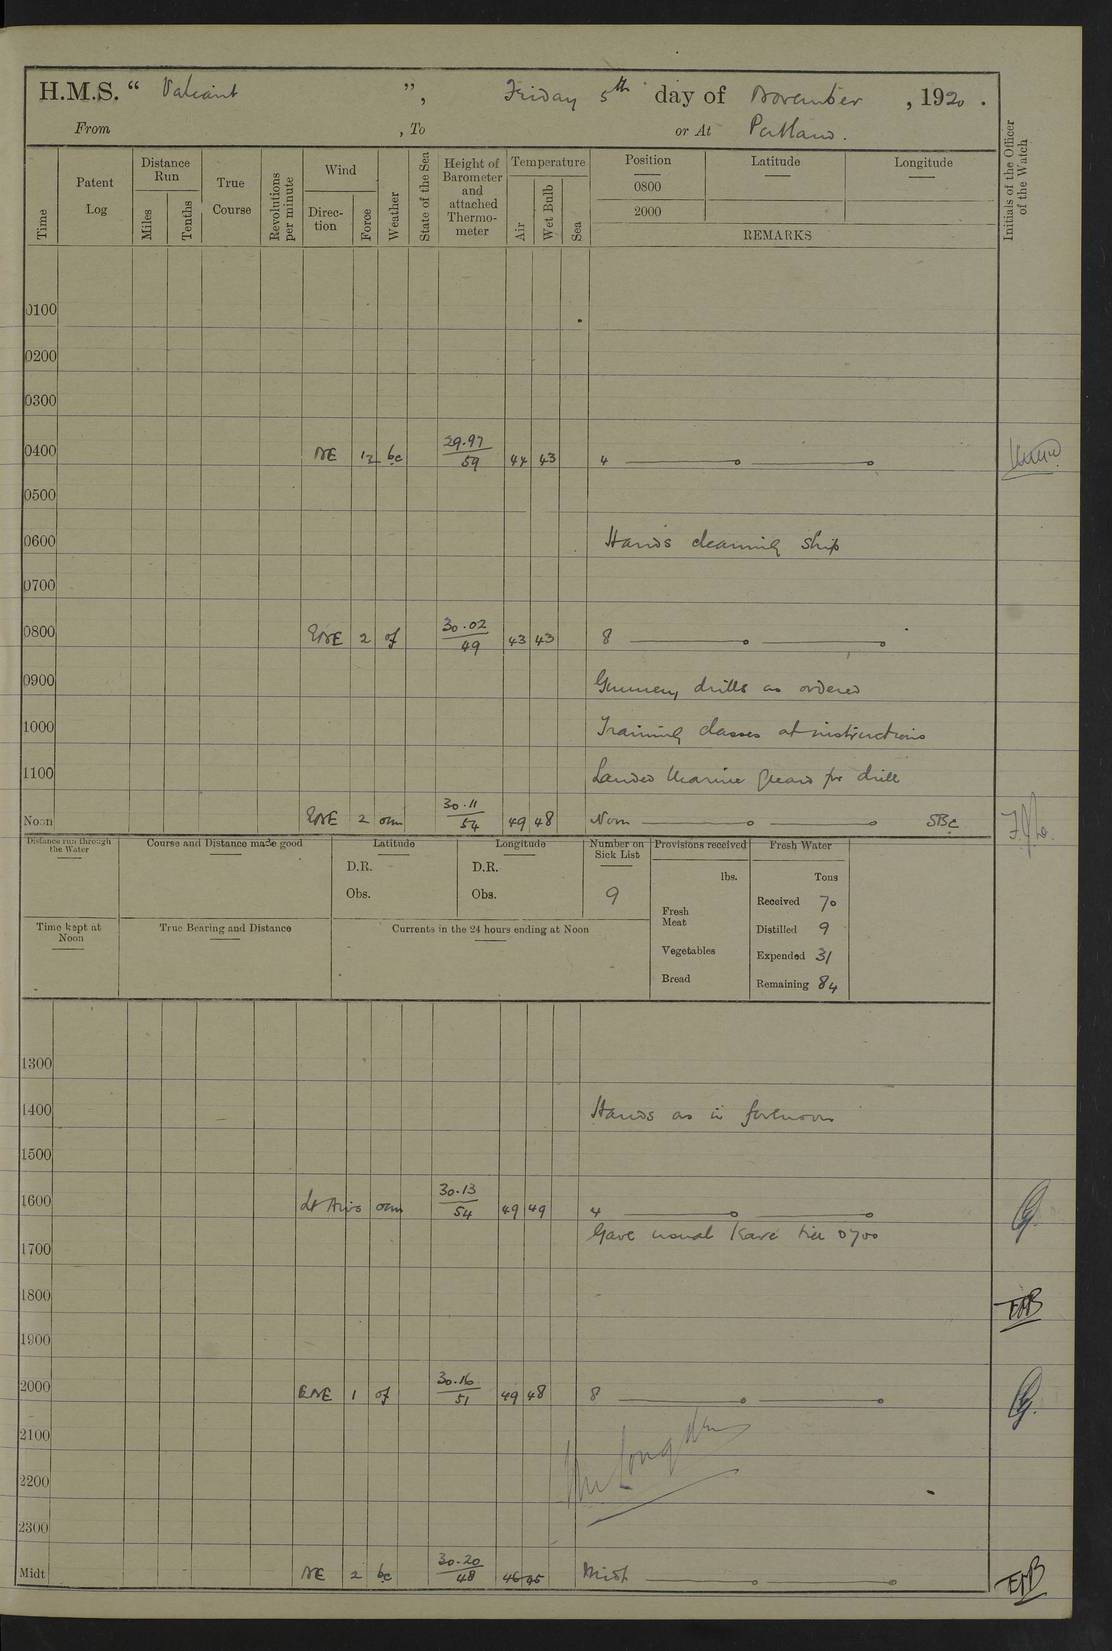 H.M.S. “ Valiant ”, Friday 5th day of November , 1920 .
From , To or At Portland.
Time
Patent Log
Distance Run
Miles
Tenths
True Course
Revolutions per minute
Wind
Direc- tion
Force
Weather
State of the Sea
Height of Barometer and attached Thermo- meter
Temperature
Air
Wet Bulb
Sea
Position
Latitude
Longitude
0800
2000
REMARKS
Initials of the Officer of the Watch
0100
0200
0300
0400 NE 1-2 bc 29.97/59 44 43 4
0500
0600 Hands cleaning ship
0700
0800 ENE 2 of 30.02/49 43 43 8
0900 Gunnery drills as ordered
1000 Training classes at instructions
1100 Landed Marine Guard for drill
Noon ENE 2 om 30.11/54 49 48 Noon SBC
Distance run through the Water
Course and Distance made good
Latitude
D.R.
Obs.
Longitude
D.R.
Obs.
Number on Sick List
9
Provisions received
lbs.
Fresh Meat
Vegetables
Bread
Fresh Water
Tons
Received 70
Distilled 9
Expended 31
Remaining 84
Time kept at Noon
True Bearing and Distance
Currents in the 24 hours ending at Noon
1300
1400 Hands as in forenoon
1500
1600 Lt Airs om 30.13/54 49 49 4
Gave usual leave till 0700
1700
1800 EMB
1900
2000 ENE 1 of 30.16/51 49 48 8
2100
2200
2300
Midt NE 2 bc 30.20/48 46 45 Midt EMB